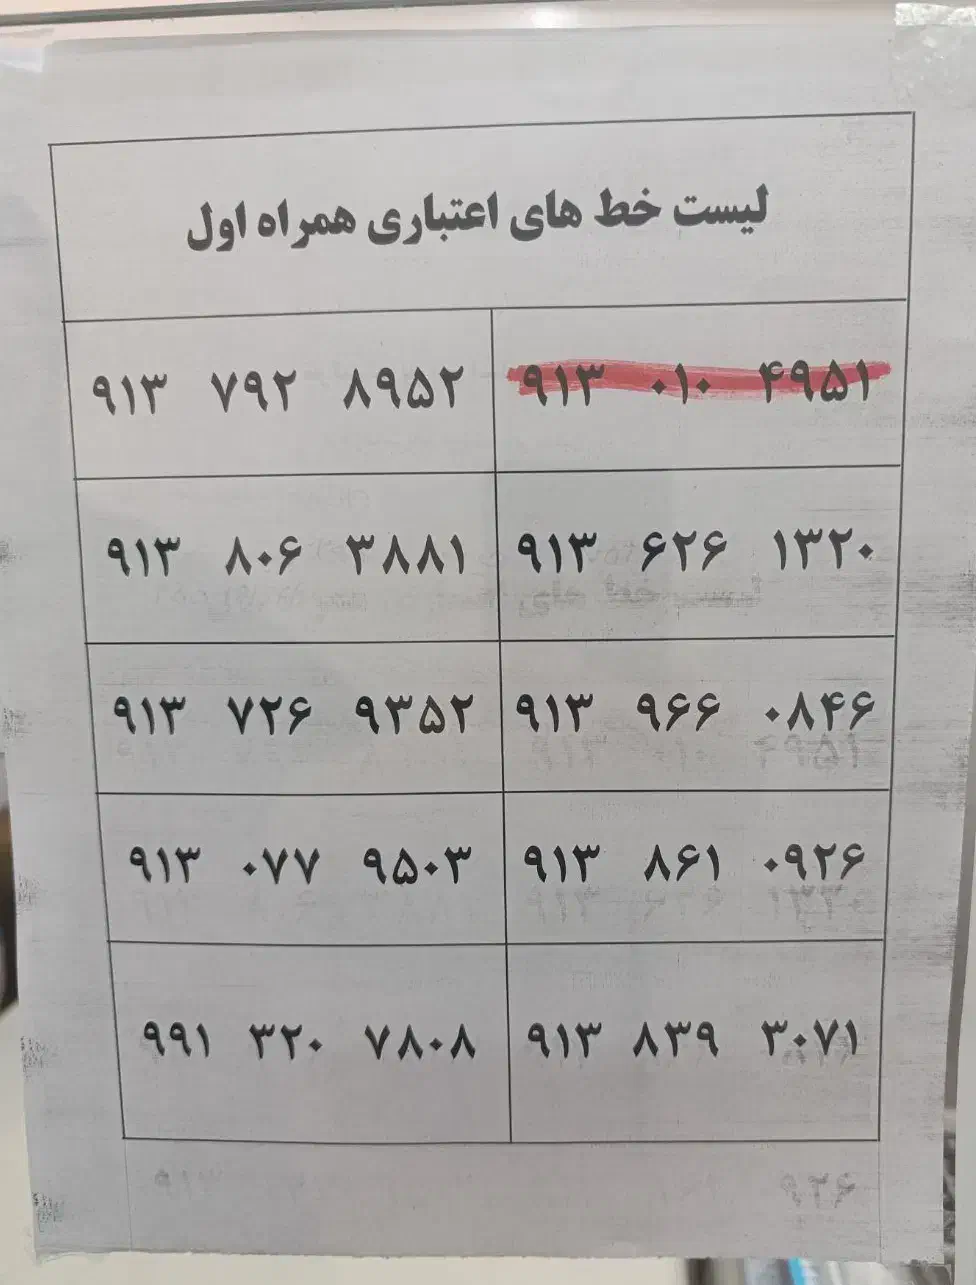 لیست خط های اعتباری همراه اول
۹۱۳ ۷۹۲ ۸۹۵۲ ۹۱۳ ۰۱۰ ۴۹۵۱
۹۱۳ ۸۰۶ ۳۸۸۱ ۹۱۳ ۶۲۶ ۱۳۲۰
۹۱۳ ۷۲۶ ۹۳۵۲ ۹۱۳ ۹۶۶ ۰۸۴۶
۹۱۳ ۰۷۷ ۹۵۰۳ ۹۱۳ ۸۶۱ ۰۹۲۶
۹۹۱ ۳۲۰ ۷۸۰۸ ۹۱۳ ۸۳۹ ۳۰۷۱